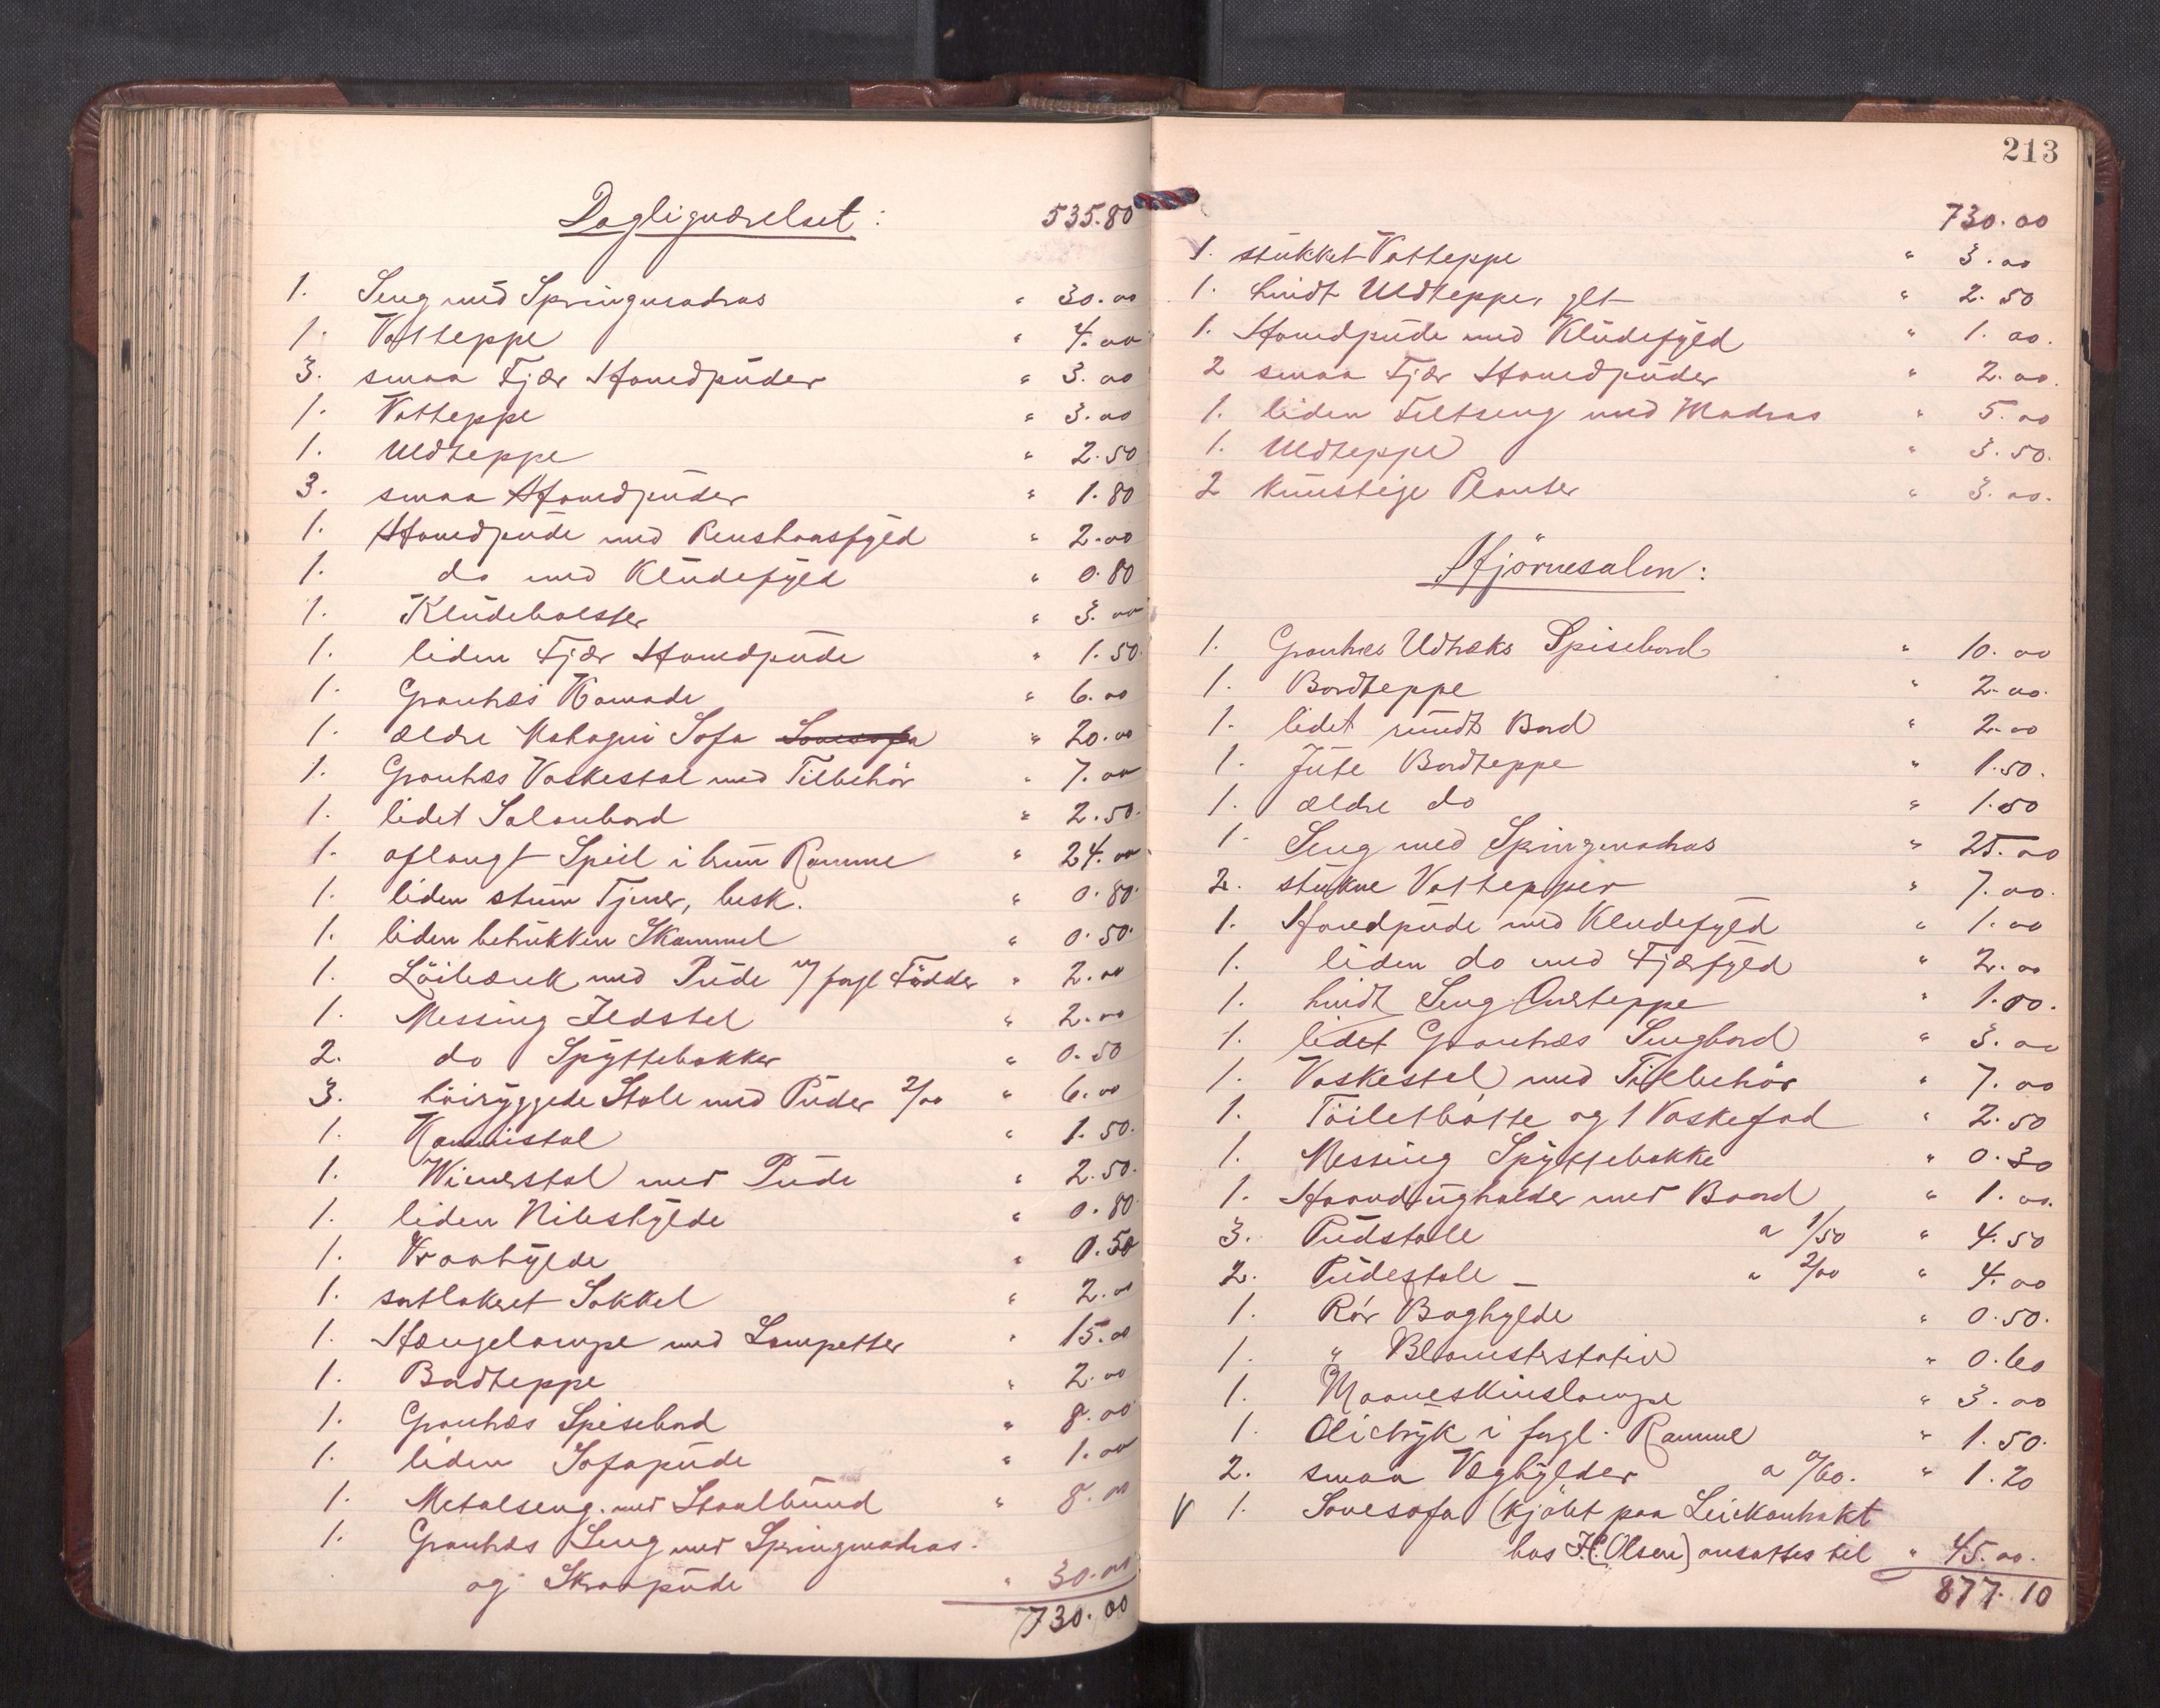 Dagligværelset: 535.80
1. Seng med Springmadras " 30.00
1. Vatteppe " 4.00
3. smaa Fjær Hovedpüder " 3.00
1. Vatteppe " 3.00
1. Uldteppe " 2.50
3. smaa Hovedpüder " 1.80
1. Hovedpüde med fyld " 2.00
1. do med Klüdefyld " 0.80
1. Klüdebolster " 3.00
1. liden Fjær Hovedpüde " 1.50
1. Grantræs Komode " 6.00
1. ældre Mahagni Sofa Sovesofa " 20.00
1. Grantræs Vaskestol med Tilbehör " 7.00
1. lidet Salonbord " 2.50
1. aflangt Speil i brün Ramme " 24.00
1. liden stüm Tjener, besk. " 0.80
1. liden betrükken Skammel " 0.50
1. Löibænk med Püde m/ forgl Födder " 2.00
1. Messing Ildstel " 2.00
2. do Spyttebakker " 0.50
3. höiryggede Stole med Püder 2/00 " 6.00
1. Kurvistol " 1.50
1. Wienerstol med Püde " 2.50
1. liden Nibshylde " 0.80
1. Vraahylde " 0.50
1. sortlakeret Sokkel " 2.00
1. Hængelampe med Lampetter " 15.00
1. Bordteppe " 2.00
1. Grantræs Spisebord " 8.00
1. liden Sofapüde " 1.00
1. Metalseng med Staalbünd " 8.00
1. Grantræs Seng med Springmadras
og Skraapüde " 30.00
730.00
213
730.00
1. stükket Vatteppe " 3.00
1. hvidt Uldteppe, glt " 2.50
1. Hovedpüde med Klüdefyld " 1.00.
2 smaa Fjær Hovedpüder " 2.00.
1. liden Feltseng med Madras " 5.00
1. Uldteppe " 3.50.
2 künstige Planter " 3.00.
Hjörnesalen:
1. Grantræs Udtræks Spisebord " 10.00
1. Bordteppe " 2.00.
1. lidet ründt Bord " 2.00
1. Jüte Bordteppe " 1.50.
1. ældre do " 1.50
1. Seng med Springmadras " 25.00
2. stükne Vattepper " 7.00.
1. Hovedpüde med Klüdefyld " 1.00
1. liden do med Fjærfyld " 2.00
1. hvidt Seng Overteppe " 1.00.
1. lidet Grantræs Sengbord " 3.00
1. Vaskestel med Tilbehör " 7.00
1. Toiletbötte og 1 Vaskefad " 2.50
1. Messing Spyttebakke " 0.30
1. Haandügholder med Baand " 1.00.
3. Püdstole a 1/50 " 4.50
2. Püdestole — " 2/00 " 4.00
1. Rör Boghylde " 0.50.
1. " Blomsterstativ " 0.60
1. Maaneskinslampe " 3.00
1. Olietryk i forgl. Ramme " 1.50.
2. smaa Væghylder a 0/60. " 1.20
V 1. Sovesofa (kjöbt paa Leiekontrakt
hos H. Olsen) ansattes til " 45.00.
877.10